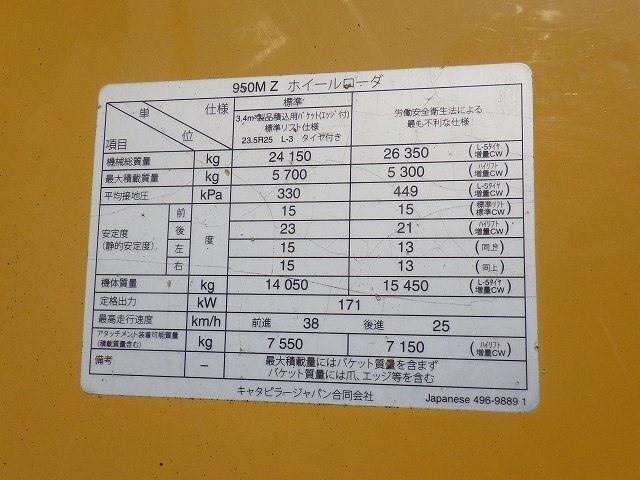 950M Z ホイールローダ
単 位 仕様 項目
標準
3.4m³製品積込用バケット(エッジ付)
標準リフト仕様
23.5R25 L-3 タイヤ付き
労働安全衛生法による
最も不利な仕様
機械総質量 kg 24 150 26 350 (L-5タイヤ 増量CW)
最大積載質量 kg 5 700 5 300 (ハイリフト 増量CW)
平均接地圧 kPa 330 449 (L-5タイヤ 増量CW)
安定度 (静的安定度) 度
前 15 15 (標準リフト 標準CW)
後 23 21 (ハイリフト 増量CW)
左 15 13 (同上)
右 15 13 (同上)
機体質量 kg 14 050 15 450 (L-5タイヤ 増量CW)
定格出力 kW 171
最高走行速度 km/h 前進 38 後進 25
アタッチメント装着可能質量 (積載質量含む) kg 7 550 7 150 (ハイリフト 増量CW)
備考 – 最大積載量にはバケット質量を含まず
バケット質量には爪、エッジ等を含む
キャタピラージャパン合同会社
Japanese 496-9889 1